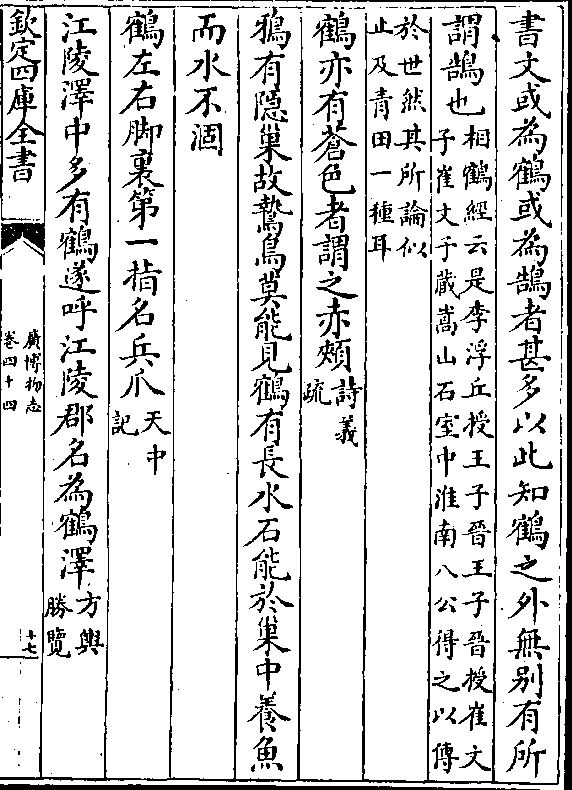 書文或為鶴或為鵠者甚多以此知鶴之外無别有所
謂鵠也相鶴經云是李浮丘授王子晉王子晉授崔文
子崔文子藏嵩山石室中淮南八公得之以傳
於世然其所論似
止及青田一種耳
鶴亦有蒼色者謂之赤頰詩義
疏
鸛有隱巢故鷙鳥莫能見鶴有長水石能於巢中養魚
而水不涸
鶴左右脚裏第一指名兵爪天中
記
江陵澤中多有鶴遂呼江陵郡名為鶴澤方輿
勝覽
欽定四庫全書
廣博物志
卷四十四
十七